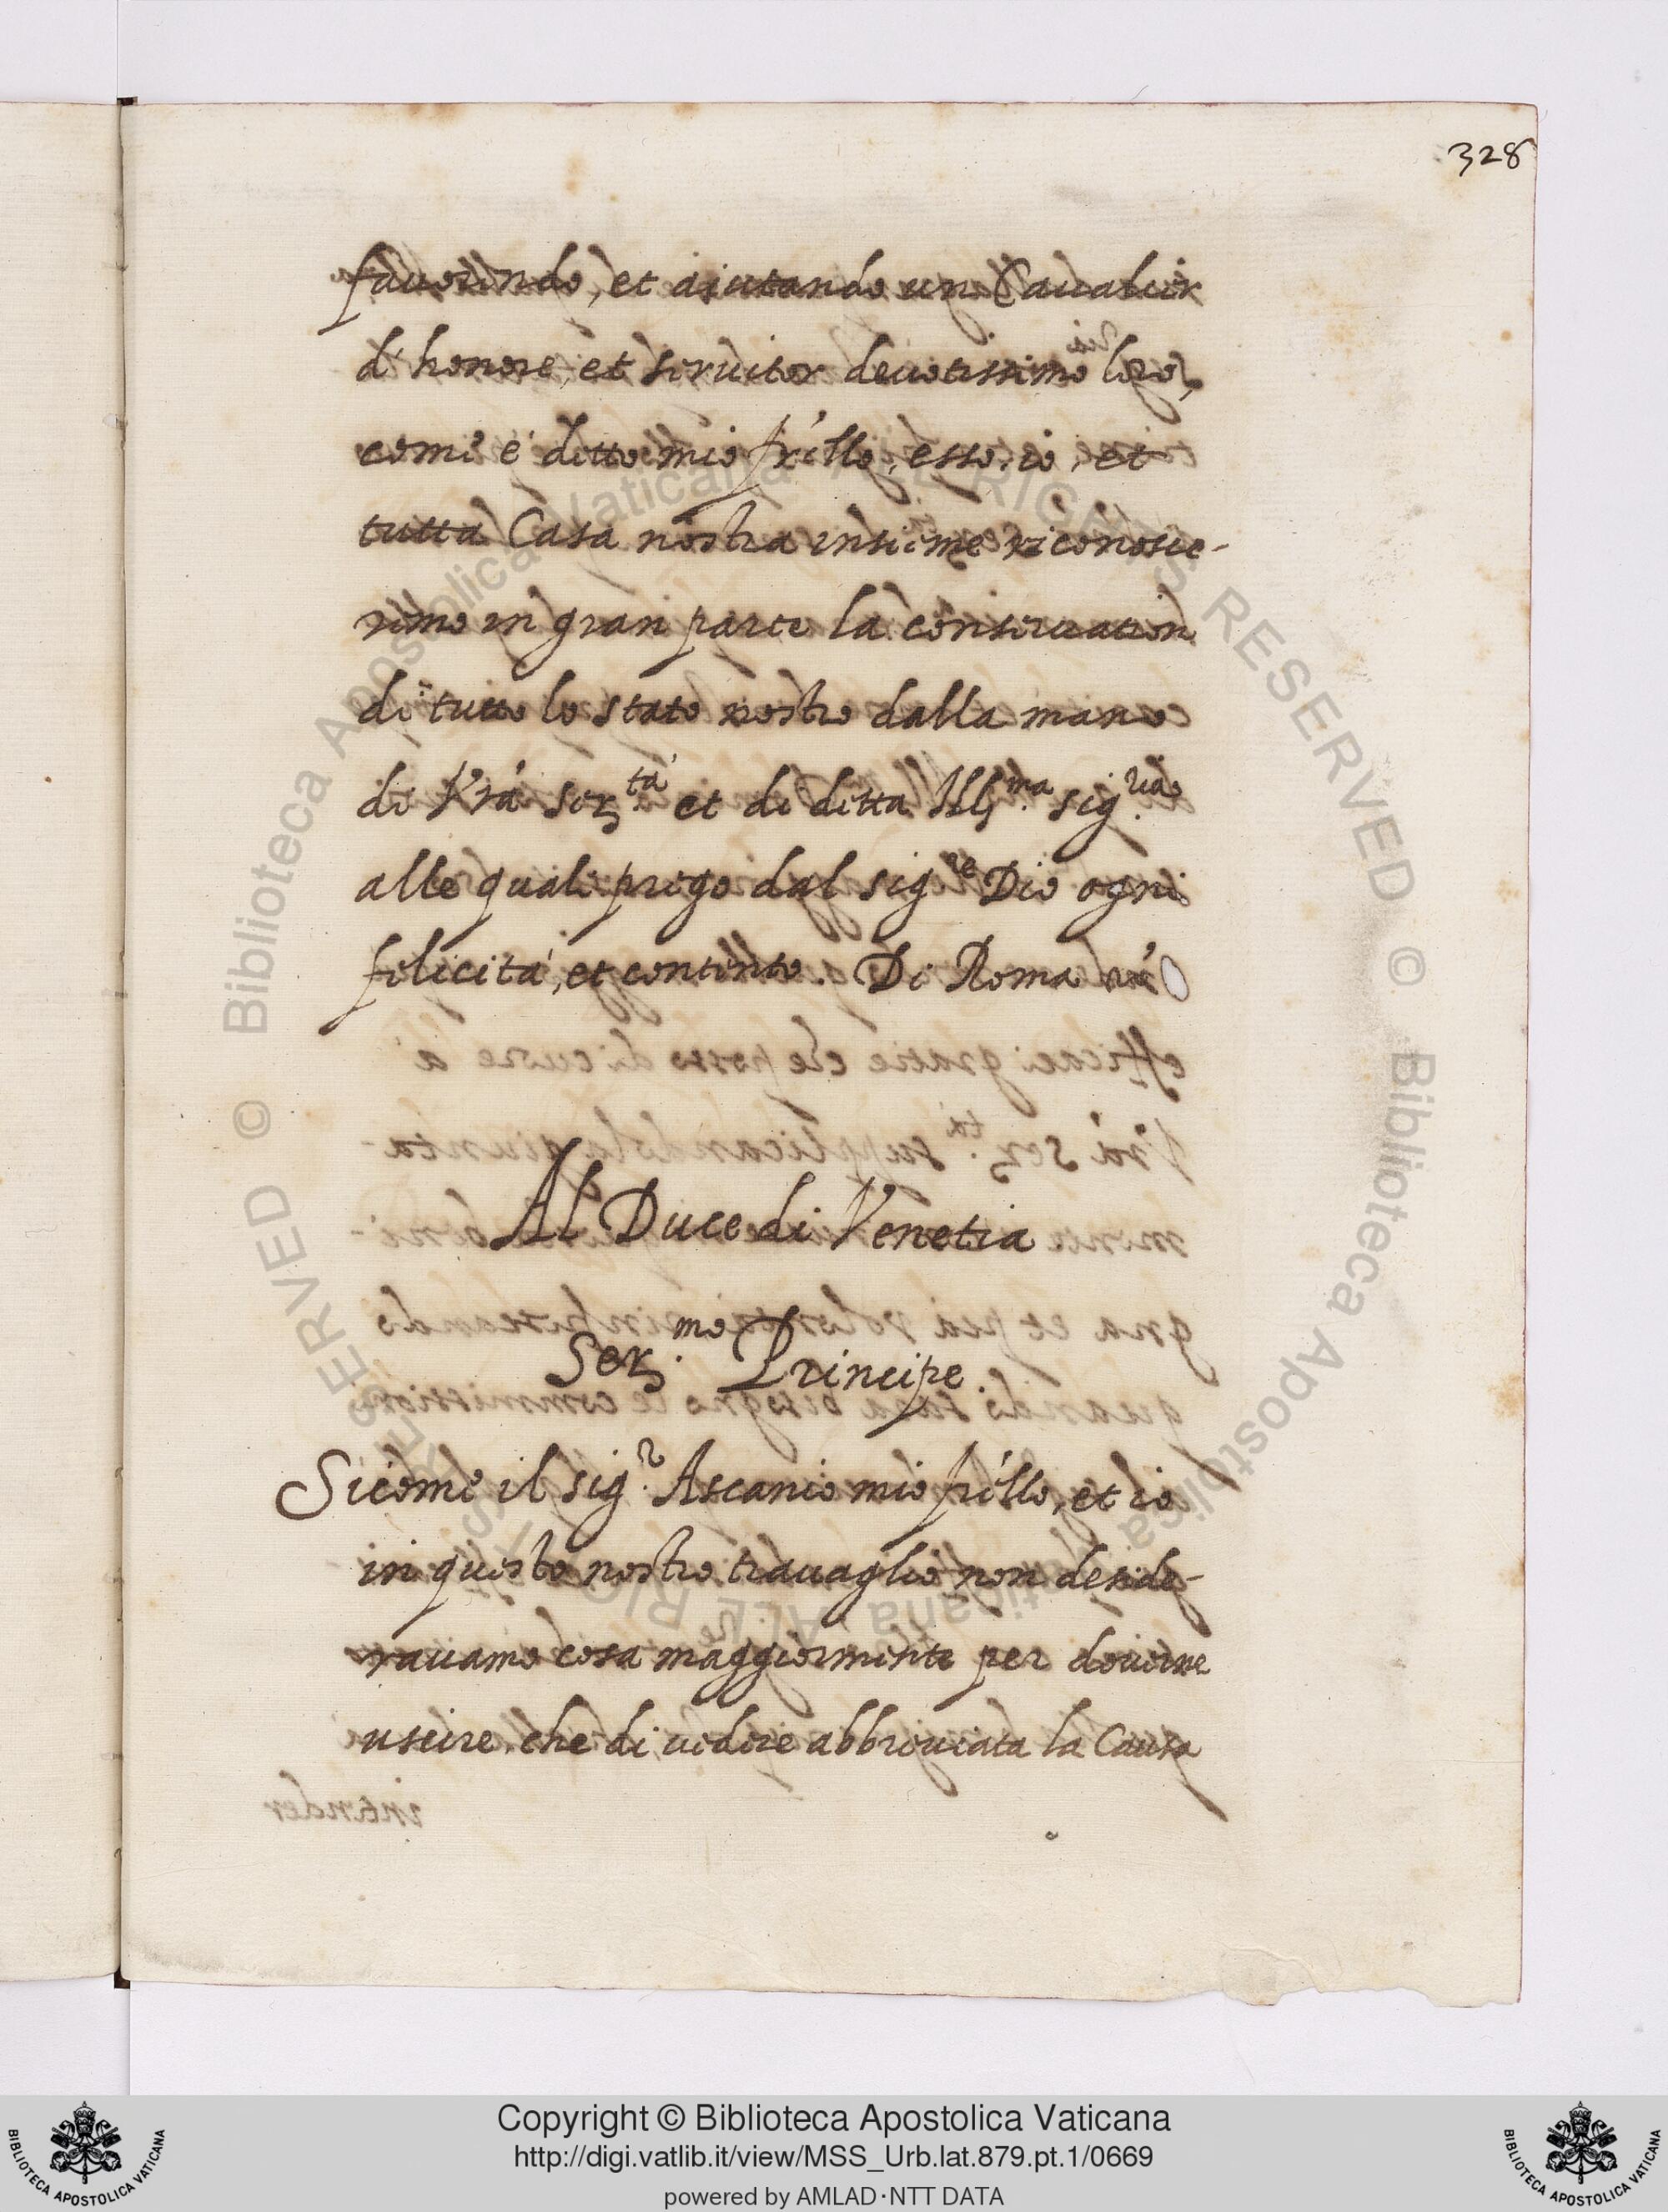 328
fauorendo, et aiutando un Caualier
d'honore, et seruitor deuotissimo loro,
come è ditto mio fr̃ello, esso, io, et
tutta Casa nostra insieme riconosce-
remo in gran parte la conseruation
di tutto lo stato nostro dalla mano
di Vr̃a Ser.tà et di ditta Ill.ma sig.ria
alle quali prego dal sig.re Dio ogni
felicità, et contento. Di Roma
Al Duce di Venetia
Ser.mo Principe.
Sicome il sig.r Ascanio mio fr̃ello, et io
in questo nostro trauaglio non deside-
rauamo cosa maggiormente per douerne
uscire, che di uedere abbreuiata la Causa
Copyright © Biblioteca Apostolica Vaticana
http://digi.vatlib.it/view/MSS_Urb.lat.879.pt.1/0669
powered by AMLAD·NTT DATA
BIBLIOTECA APOSTOLICA VATICANA
BIBLIOTECA APOSTOLICA VATICANA